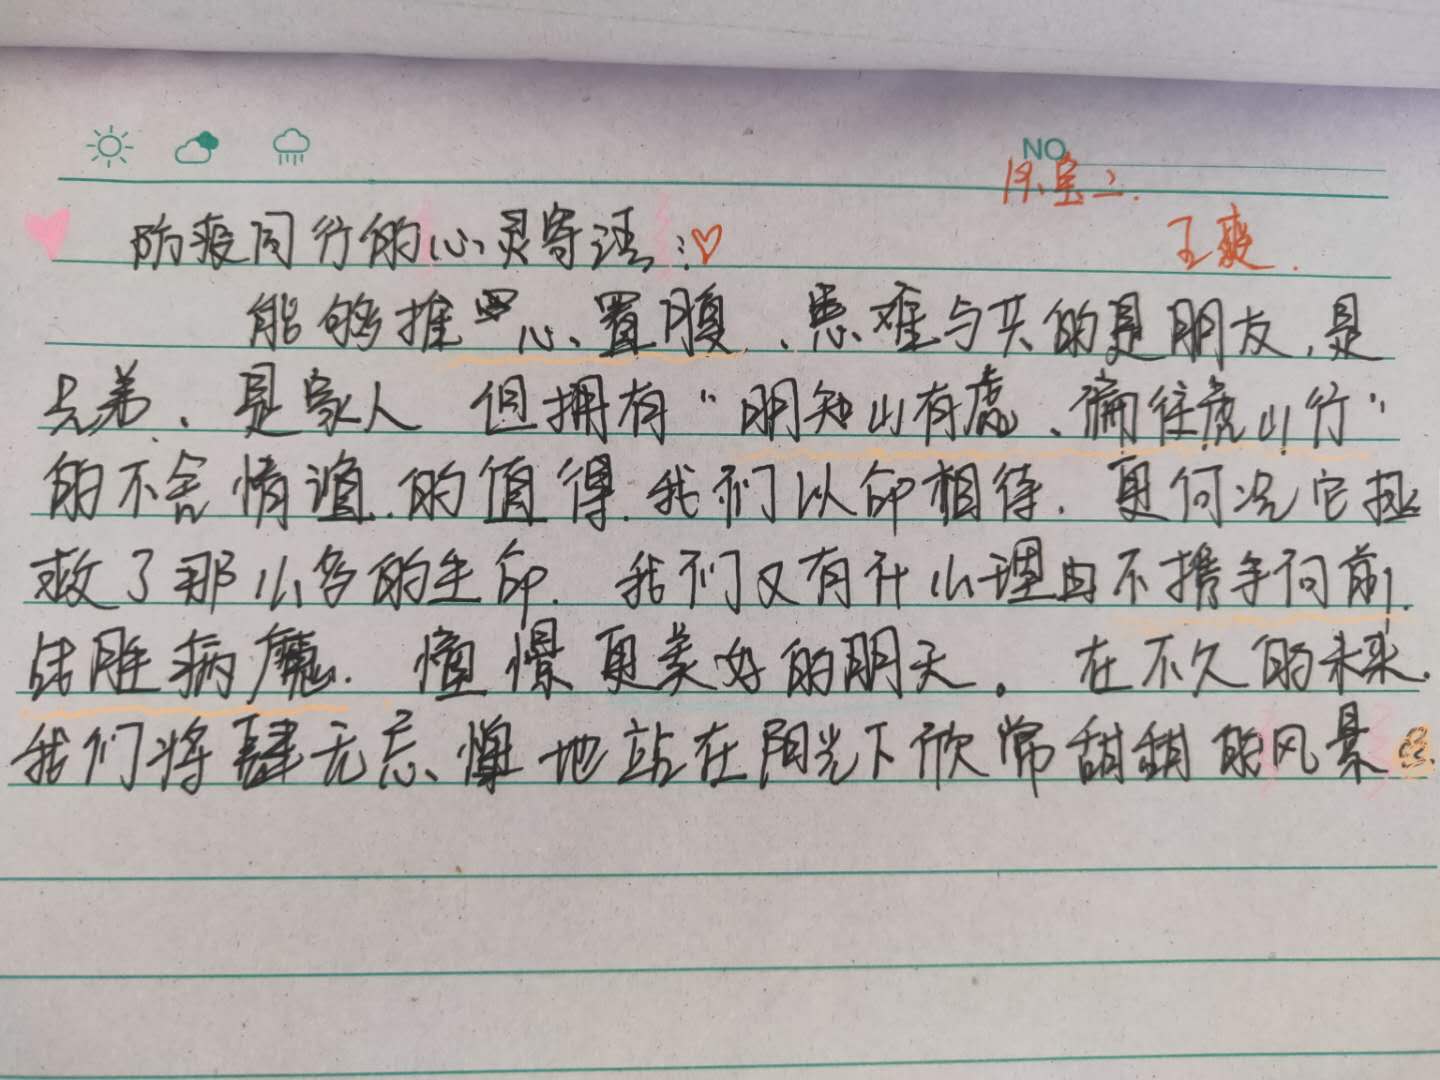 NO
王爽.
防疫同行的心灵寄语:
能够推心置腹、患难与共的是朋友,是
兄弟、是家人 但拥有“明知山有虎、偏往虎山行”
的不舍情谊.的值得.我们以命相待.更何况它拯
救了那么多的生命. 我们又有什么理由不携手向前.
战胜病魔. 憧憬更美好的明天。 在不久的未来.
我们将肆无忌惮地站在阳光下欣常甜甜的风景